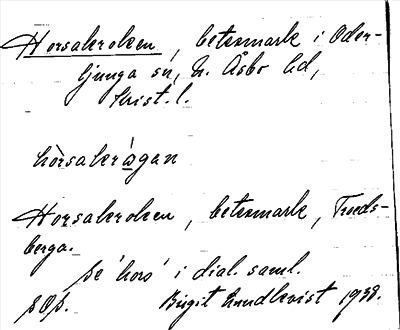 Horsakroken, betesmark i Oder-
ljunga sn, N. Åsbo hd,
Krist. l.
hòrsakrågan
Horsakroken, betesmark, Troeds-
berga.
Se 'hors' i dial. saml.
Birgit Lundkvist 1938.